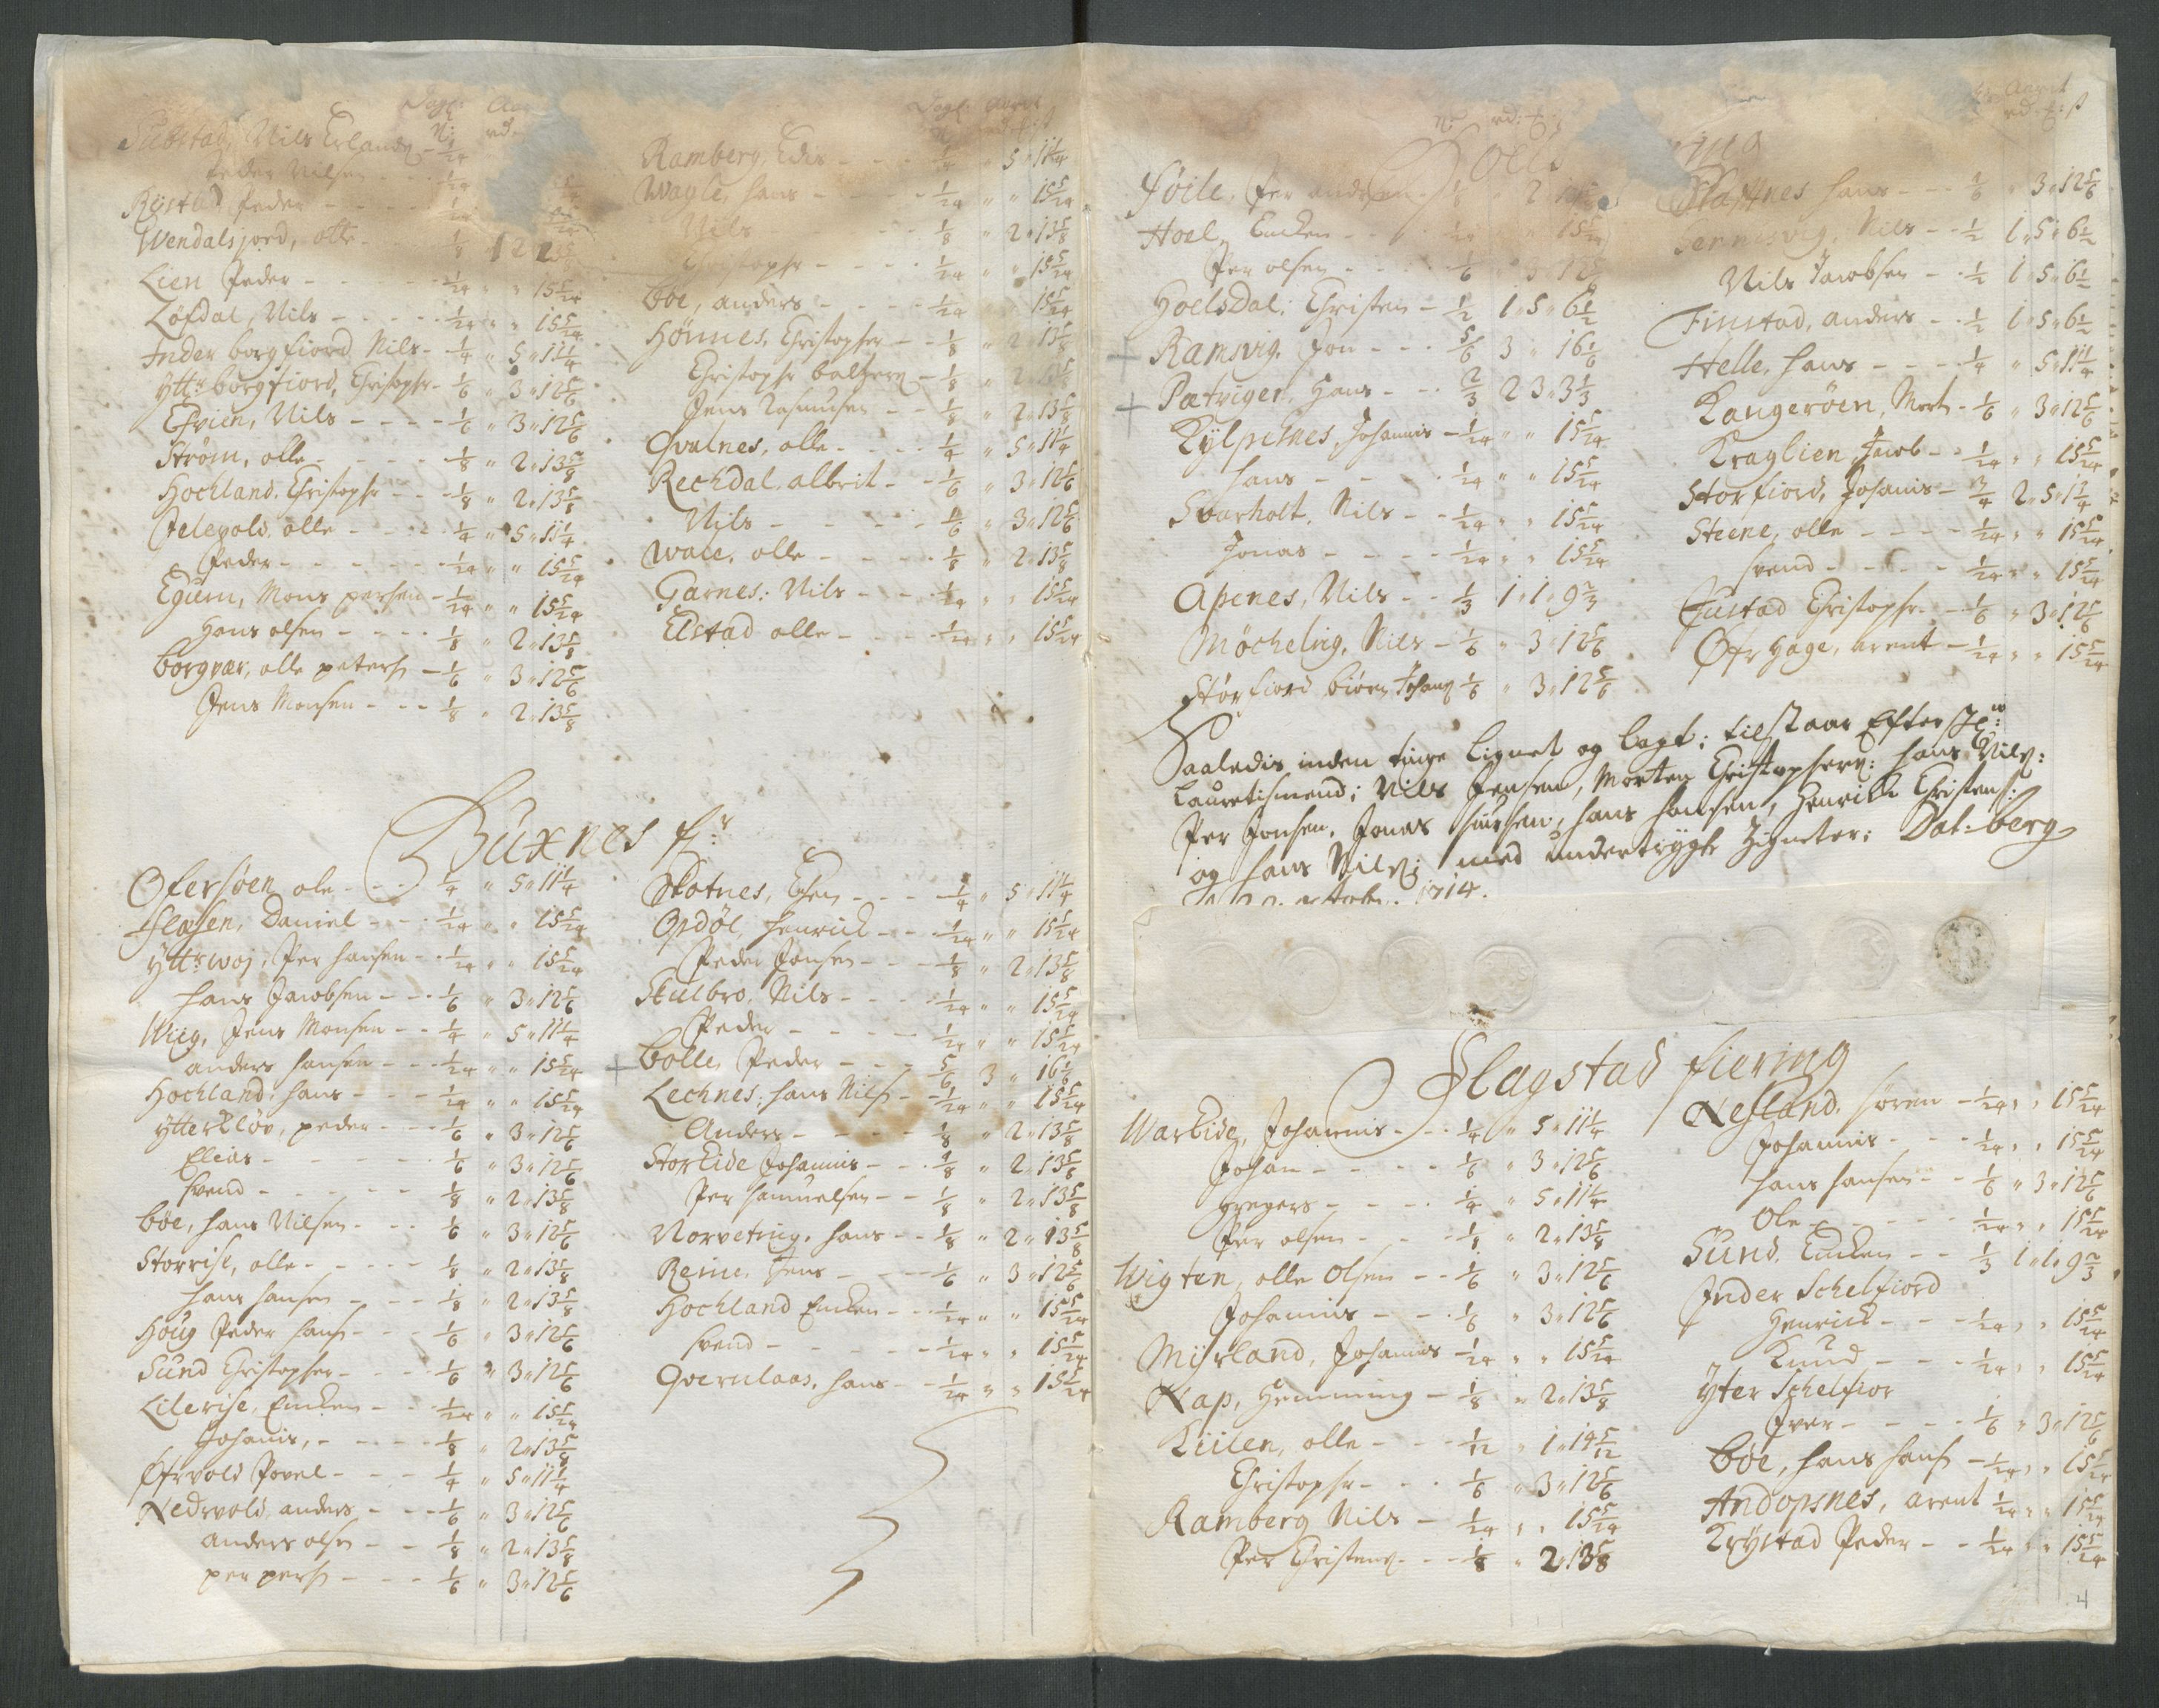 Nils Erlands - 1/24
Peder Nilsen - - 1/24
Peder - - - - 1/24
Wendalsjord, olle - 1/8
Lien Peder - - - - 1/24 " " 15 5/24
Løfdal, Nils - - - - 1/24 " " 15 5/24
Inder borgfiord Nils - 1/4 " 5 " 11 1/4
ytt: borgfiord, Christophr - 1/6 " 3 " 12 5/6
Nils - - - - 1/6 " 3 " 12 5/6
Strøm, olle - - - - 1/8 " 2 " 13 5/8
Hochland, Christophr - - 1/8 " 2 " 13 5/8
olle - - - 1/4 " 5 " 11 1/4
Peder - - - - - 1/24 " " 15 5/24
Egum, Mons persen - 1/24 " " 15 5/24
Hans olsen - - - 1/8 " 2 " 13 5/8
borgvær, olle peters - 1/6 " 3 " 12 5/6
Jens Monsen - - - 1/8 " 2 " 13 5/8
Ramberg, - - - 1/4 " 5 " 11 1/4
Wagle, hans - - - - 1/24 " " 15 5/24
Nils - - - 1/8 " 2 " 13 5/8
Christophr - - - 1/24 " " 15 5/24
böe, anders - - - - 1/24 " " 15 5/24
Hönnes, Christopher - - 1/8 " 2 " 13 5/8
Christophr baltzers - 1/8 " 2 " 13 5/8
Jens Rasmusen - - 1/8 " 2 " 13 5/8
Qvalnes, olle - - - - 1/4 " 5 " 11 1/4
Rechdal, albrit - - 1/6 " 3 " 12 5/6
Nils - - - - - 1/6 " 3 " 12 5/6
Wace, olle - - - - 1/8 " 2 " 13 5/8
Garnes, Nils - - - 1/24 " " 15 5/24
Elstad olle - - - - 1/24 " " 15 5/24
Buxnes f:r
Ofersøen ole - - - 1/4 " 5 " 11 1/4
Daniel - - - 1/24 " " 15 5/24
ytt: Per hansen - - 1/24 " " 15 5/24
hans Jacobsen - - - 1/6 " 3 " 12 5/6
Wiig, Jens Monsen - - 1/4 " 5 " 11 1/4
anders hansen - - - 1/24 " " 15 5/24
Hochland, hans - - - 1/24 " " 15 5/24
ytterkløv, peder - - - 1/6 " 3 " 12 5/6
Elias - - - - - 1/6 " 3 " 12 5/6
svend - - - - - 1/8 " 2 " 13 5/8
böe, hans Nilsen - - - 1/6 " 3 " 12 5/6
Storrise, olle - - - - 1/8 " 2 " 13 5/8
hans hansen - - - 1/8 " 2 " 13 5/8
Houg Peder hans - - - 1/6 " 3 " 12 5/6
Sund Christopher - - - 1/6 " 3 " 12 5/6
Lilerise, - - 1/24 " " 15 5/24
Johanis, - - - - 1/8 " 2 " 13 5/8
Øfrvold Povel - - - 1/4 " 5 " 11 1/4
Nedrvold, anders - - - 1/6 " 3 " 12 5/6
anders olsen - - 1/8 " 2 " 13 5/8
per pers - - - 1/6 " 3 " 12 5/6
Skotnes, - - - 1/4 " 5 " 11 1/4
Opdøl, henrich - - - 1/24 " " 15 5/24
Peder Jonsen - - - 1/8 " 2 " 13 5/8
Skulbro, Nils - - - - 1/24 " " 15 5/24
Peder - - - - 1/24 " " 15 5/24
+ bolle, Peder - - - 5/6 3 " 16 1/6
Lechnes, hans Nils - - 1/24 " " 15 5/24
Anders - - - - 1/8 " 2 " 13 5/8
Storeide Johannis - - - 1/8 " 2 " 13 5/8
Per Samuelsen - - 1/8 " 2 " 13 5/8
hans - - 1/8 " 2 " 13 5/8
Reine, Jens - - - 1/6 " 3 " 12 5/6
Hochland - - - 1/24 " " 15 5/24
svend - - - - - 1/24 " " 15 5/24
hans - - 1/24 " " 15 5/24
Per andersen
Hoel,
Per olsen - - - 1/6 " 3 " 12 5/6
Hoelsdal: Christen - 1/2 1 " 5 " 6 1/2
+ Ramsvig, Jon - - - 5/6 3 " 16 1/6
+ Hans - - - 2/3 2 3 " 3 1/3
Johannis - 1/24 " " 15 5/24
hans - - - - 1/24 " " 15 5/24
Svarholt, Nils - - 1/24 " " 15 5/24
Jonas - - - - 1/24 " " 15 5/24
Apenes, Nils - - 1/3 1 " 1 " 9 2/3
Nils - 1/6 " 3 " 12 5/6
Størfiord biörn Johans 1/6 " 3 " 12 5/6
hans - - - 1/6 " 3 " 12 5/6
Nils - - 1/2 1 " 5 " 6 1/2
Nils Jacobsen - - 1/2 1 " 5 " 6 1/2
Finstad, anders - - 1/2 1 " 5 " 6 1/2
Helle, hans - - - - 1/4 " 5 " 11 1/4
Langerøen, Mort - 1/6 " 3 " 12 5/6
Kraglien, Jacob - - 1/24 " " 15 5/24
Storfiord, Johanis - 3/4 2 " 5 " 1 3/4
Steene, olle - - - - 1/24 " " 15 5/24
svend - - - - 1/24 " " 15 5/24
Justad Christophr - - 1/6 " 3 " 12 5/6
Øfr hage, arent - 1/24 " " 15 5/24
Saaledis inden tinge lignet og lagt; tilstaar Efterskr:
Lauretismend; Nils Jensen, Morten Christophers: hans Nils:
Per Jonsen, Jonas hansen, Henrich Christens:
og hans Nils: med undertrygte Zigneter: Dal: berg
1714.
Flagstad fiering
Wareide, Johannis - - - 1/4 " 5 " 11 1/4
Johan - - - - 1/6 " 3 " 12 5/6
gregers - - - - 1/4 " 5 " 11 1/4
Per olsen - - - 1/8 " 2 " 13 5/8
Wigten, olle Olsen - - 1/6 " 3 " 12 5/6
Johannis - - - 1/6 " 3 " 12 5/6
Myrland, Johannis 1/24 " " 15 5/24
Nap, Hemming - 1/8 " 2 " 13 5/8
Kiilen, olle - - - 1/12 " 1 " 14 5/12
Christophr - - - 1/6 " 3 " 12 5/6
Ramberg Nils - 1/24 " " 15 5/24
Per Christens - - - 1/8 " 2 " 13 5/8
Nesland, Sören - 1/24 " " 15 5/24
Johannis - - - 1/24 " " 15 5/24
hans hansen - - 1/6 " 3 " 12 5/6
Ole - - - - - 1/24 " " 15 5/24
Sund, - - 1/3 1 " 1 " 9 2/3
Inder Schelfiord
Henrich - - - 1/24 " " 15 5/24
Knud - - - 1/24 " " 15 5/24
Yter Schelfior
Iver - - - - 1/6 " 3 " 12 5/6
Böe, hans hans - 1/24 " " 15 5/24
Andopsnes, arent 1/24 " " 15 5/24
Krÿstad Peder - - 1/24 " " 15 5/24
4